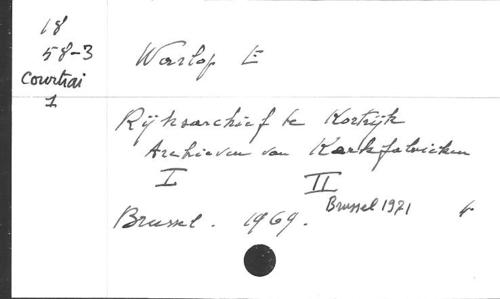 18
58-3
Courtrai
1
Warlop E
Rijksarchief te Kortrijk
Archieven van Kerkfabrieken
I II
Brussel 1971
Brussel. 1969.